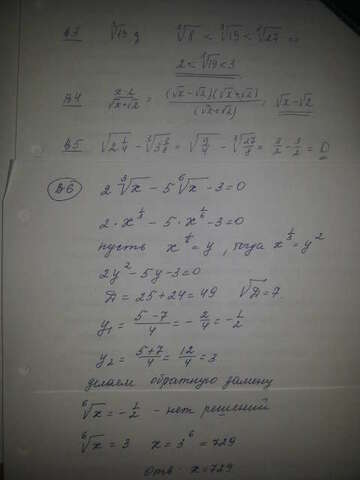 В3 ∛19 ∛8 < ∛19 < ∛27 ⇒
2 < ∛19 < 3
В4 (x-2)/(√x+√2) = (√x-√2)(√x+√2)/(√x+√2) = √x-√2
В5 √(2 1/4) - ∛(3 3/8) = √(9/4) - ∛(27/8) = 3/2 - 3/2 = 0
В6 2 ∛x - 5 ⁶√x - 3 = 0
2·x^(1/3) - 5·x^(1/6) - 3 = 0
пусть x^(1/6) = y, тогда x^(1/3) = y²
2y² - 5y - 3 = 0
Д = 25 + 24 = 49 √Д = 7
y₁ = (5-7)/4 = -2/4 = -1/2
y₂ = (5+7)/4 = 12/4 = 3
делаем обратную замену
⁶√x = -1/2 - нет решений
⁶√x = 3 x = 3⁶ = 729
Отв. x = 729